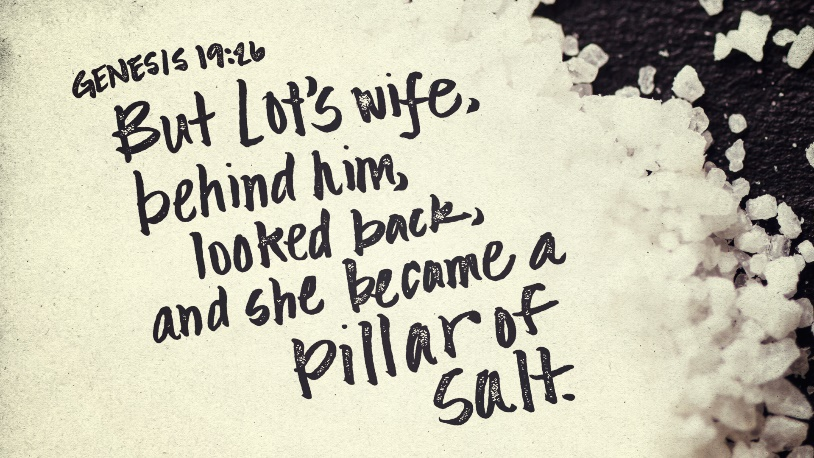 GENESIS 19:26
But Lot's wife,
behind him,
looked back,
and she became a
pillar of
salt.